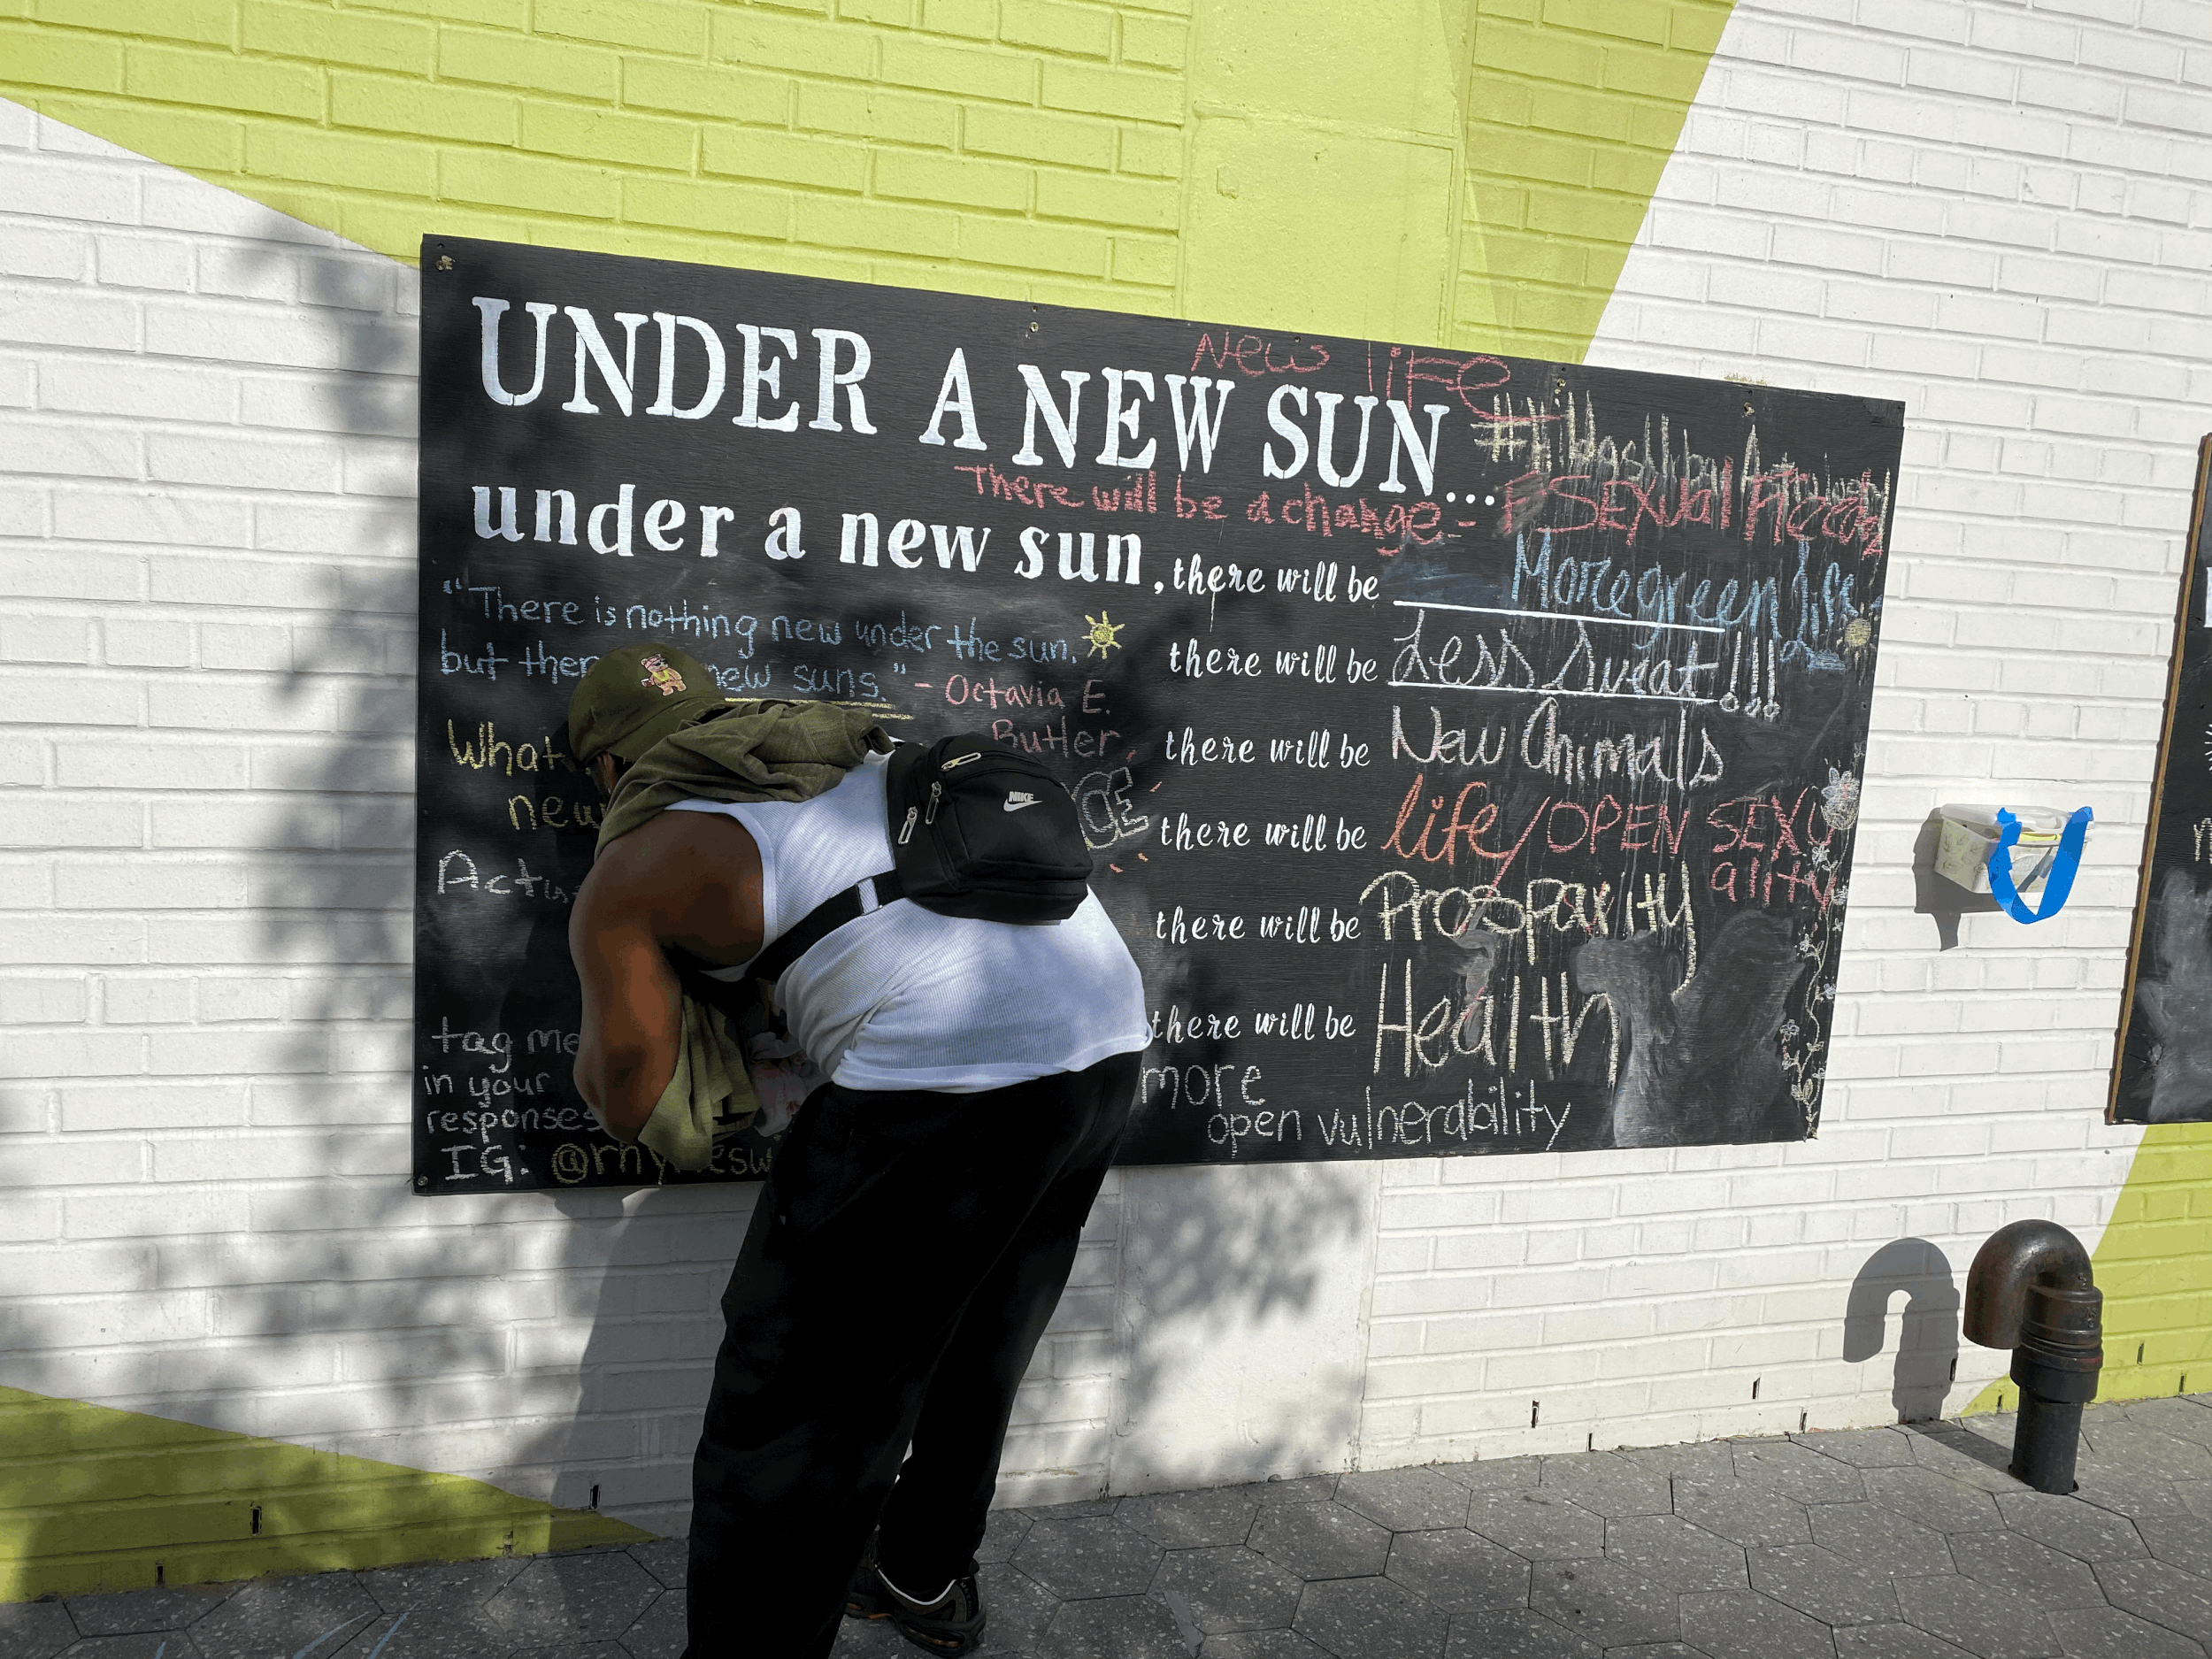 New life
UNDER A NEW SUN...
There will be a change - SEXUal
under a new sun, there will be More green life
"There is nothing new under the sun,
but ther new suns." - Octavia E.
Butler
there will be Less Sweat!!!
What
new
there will be New Animals
CE
NIKE
there will be life/OPEN SEXU
ality
Act
there will be Prosparity
there will be Health
tag me
in your
responses
IG:
more
open vulnerability